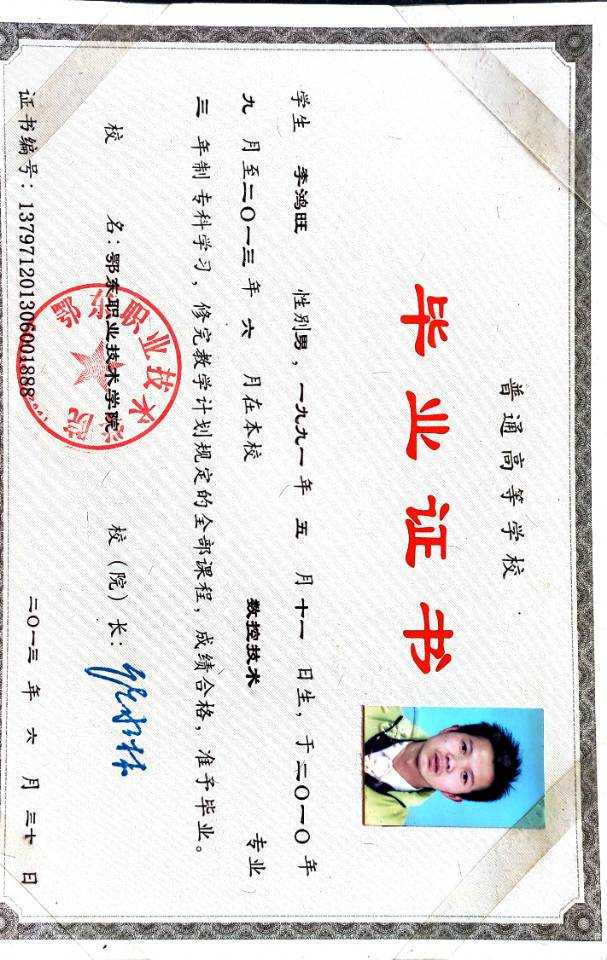 普通高等学校
毕业证书
学生 李鸿旺 性别男，一九九一年 五 月十一日生，于二〇一〇年
九 月至二〇一三年 六 月在本校 数控技术 专业
三 年制专科学习，修完教学计划规定的全部课程，成绩合格，准予毕业。
校 名：鄂东职业技术学院 校（院）长：
鄂东职业技术学院
证书编号：137971201306001888 二〇一三 年 六 月 三十 日